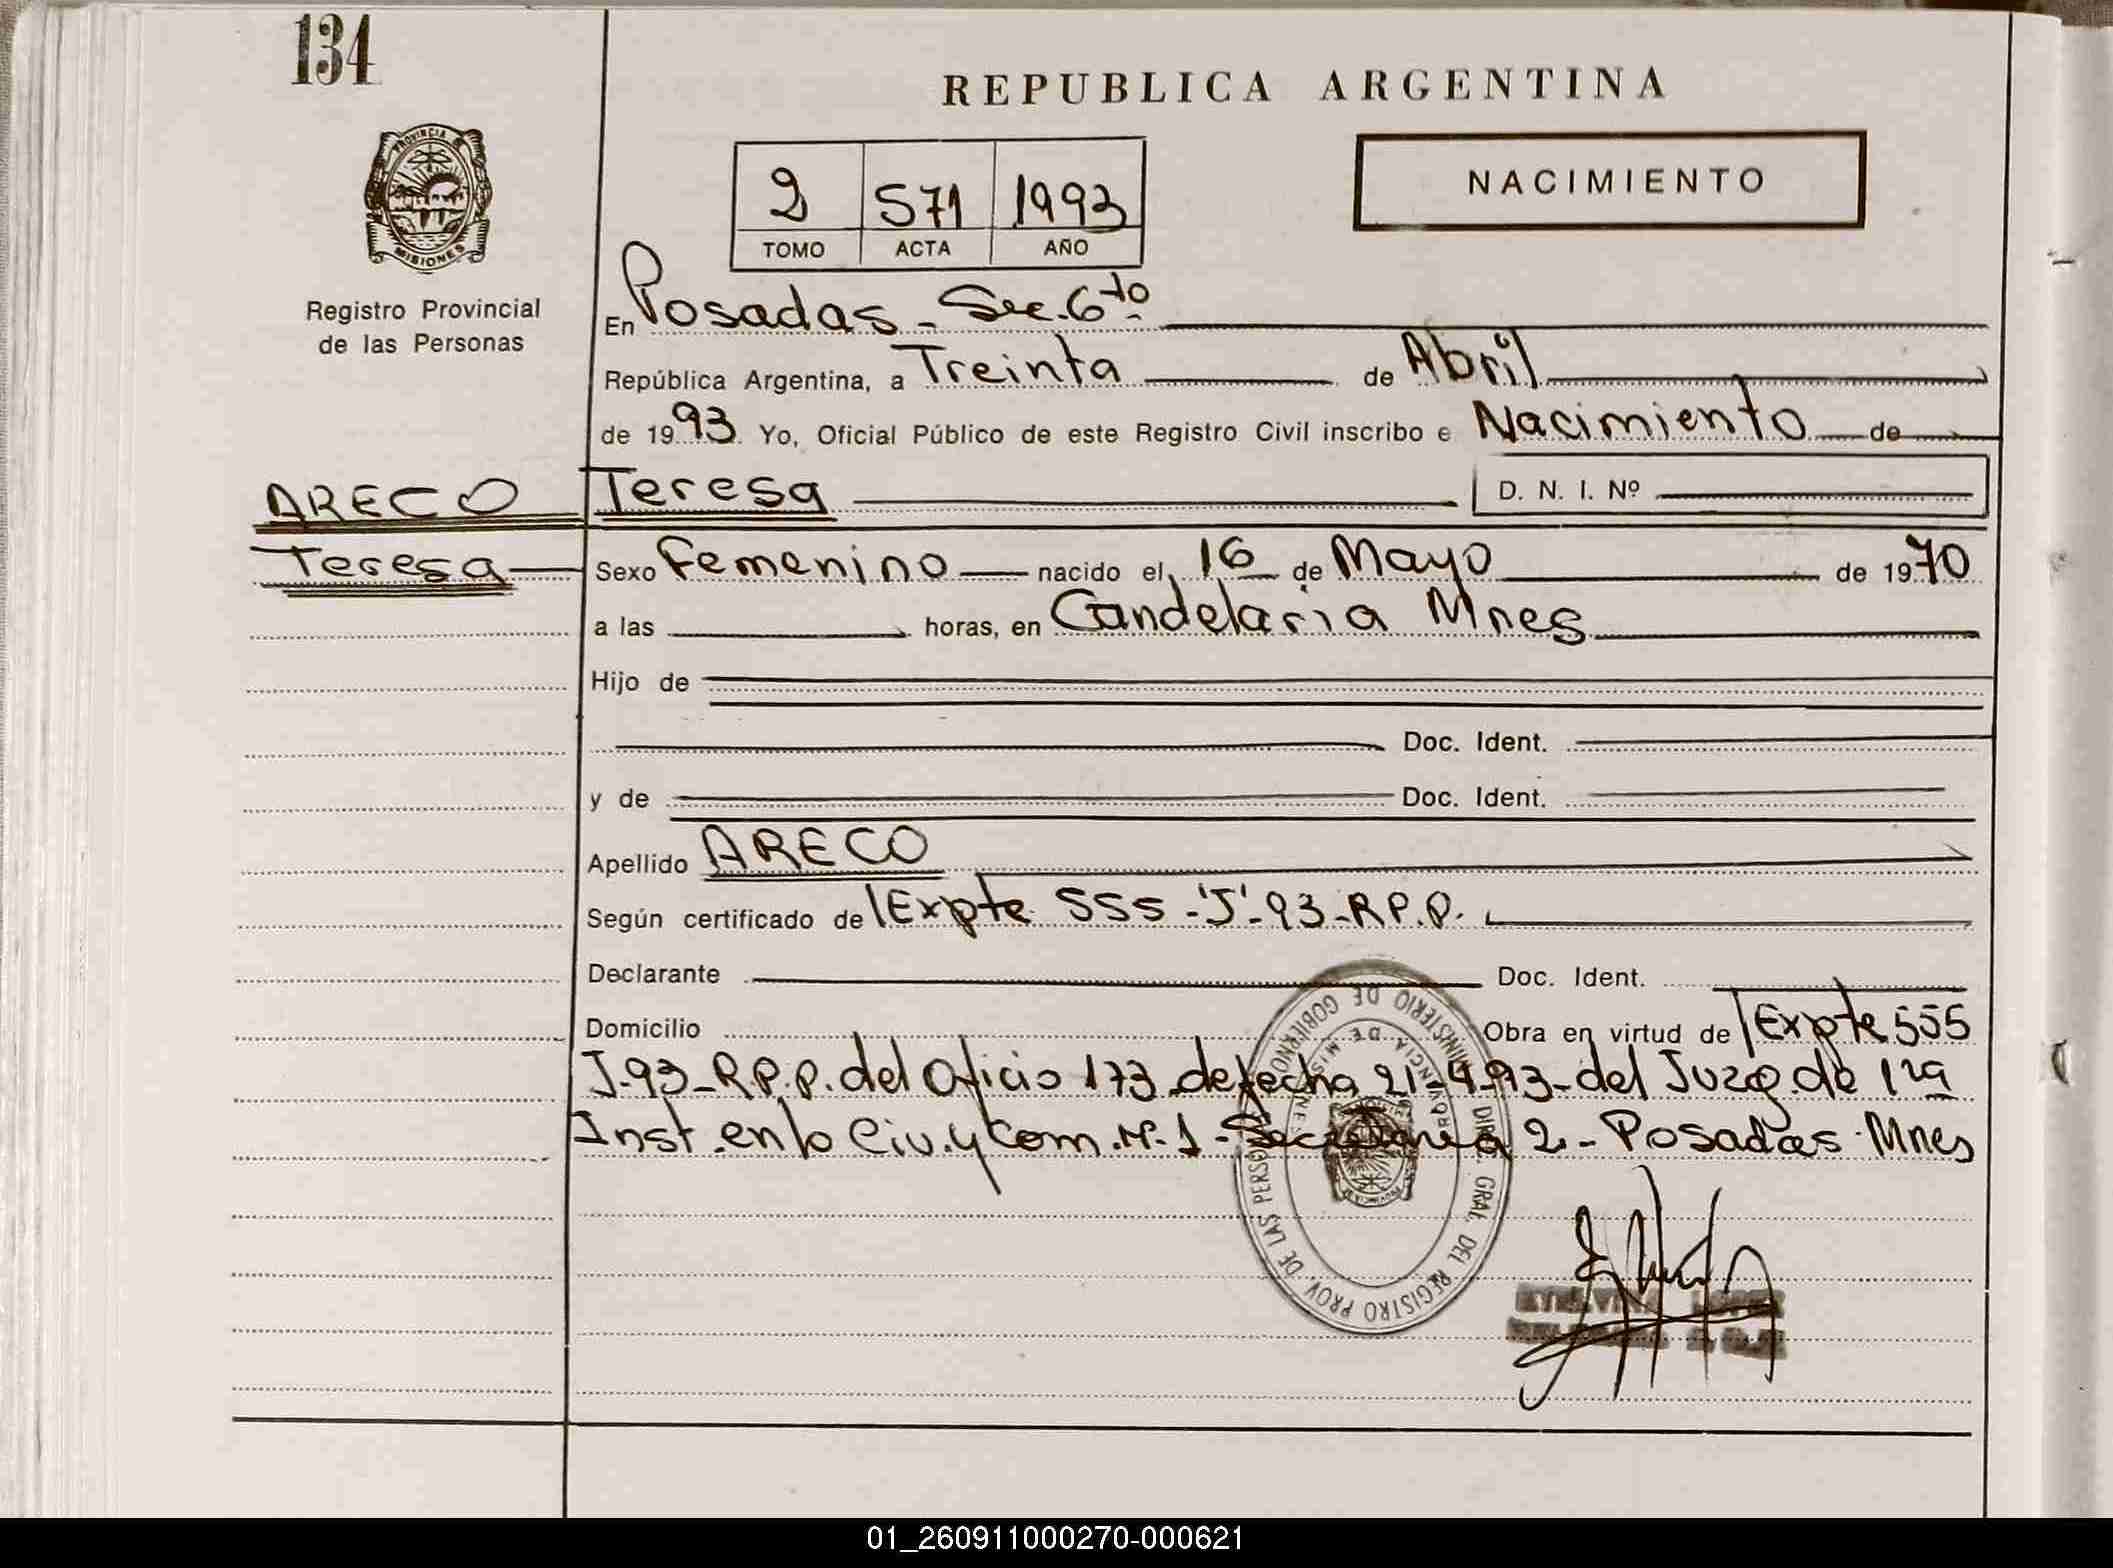 134
REPUBLICA ARGENTINA
PROVINCIA DE
MISIONES
Registro Provincial
de las Personas
NACIMIENTO
2 571 1993
TOMO ACTA AÑO
En Posadas - Sec. 6to.
República Argentina, a Treinta de Abril
de 1993. Yo, Oficial Público de este Registro Civil inscribo e Nacimiento de
ARECO Teresa D. N. I. Nº
Teresa Sexo Femenino nacido el 16 de Mayo de 1970
a las horas, en Candelaria Mnes
Hijo de
Doc. Ident.
y de Doc. Ident.
Apellido ARECO
Según certificado de Expte 555-'J'-93-R.P.P.
Declarante Doc. Ident.
Domicilio Obra en virtud de Expte 555
J-93-R.P.P. del Oficio 173 de fecha 21-4-93-del Juzg. de 1ra
Inst. en lo Civ. y Com. Nº 1 - Secretaria 2 - Posadas - Mnes
MINISTERIO DE GOBIERNO
PROVINCIA DE MISIONES
DIRC. GRAL. DEL REGISTRO PROV. DE LAS PERSONAS
01_260911000270-000621